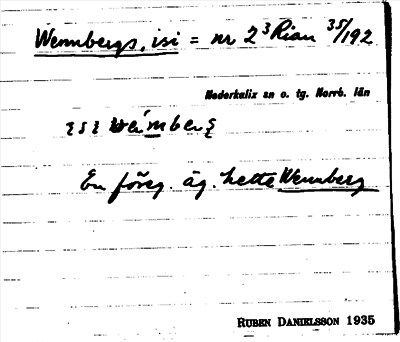 Wennbergs, isi = nr 2³ Rian 35/192
Nederkalix sn o. tg. Norrb. län
En föreg. äg. hette Wennberg
RUBEN DANIELSSON 1935